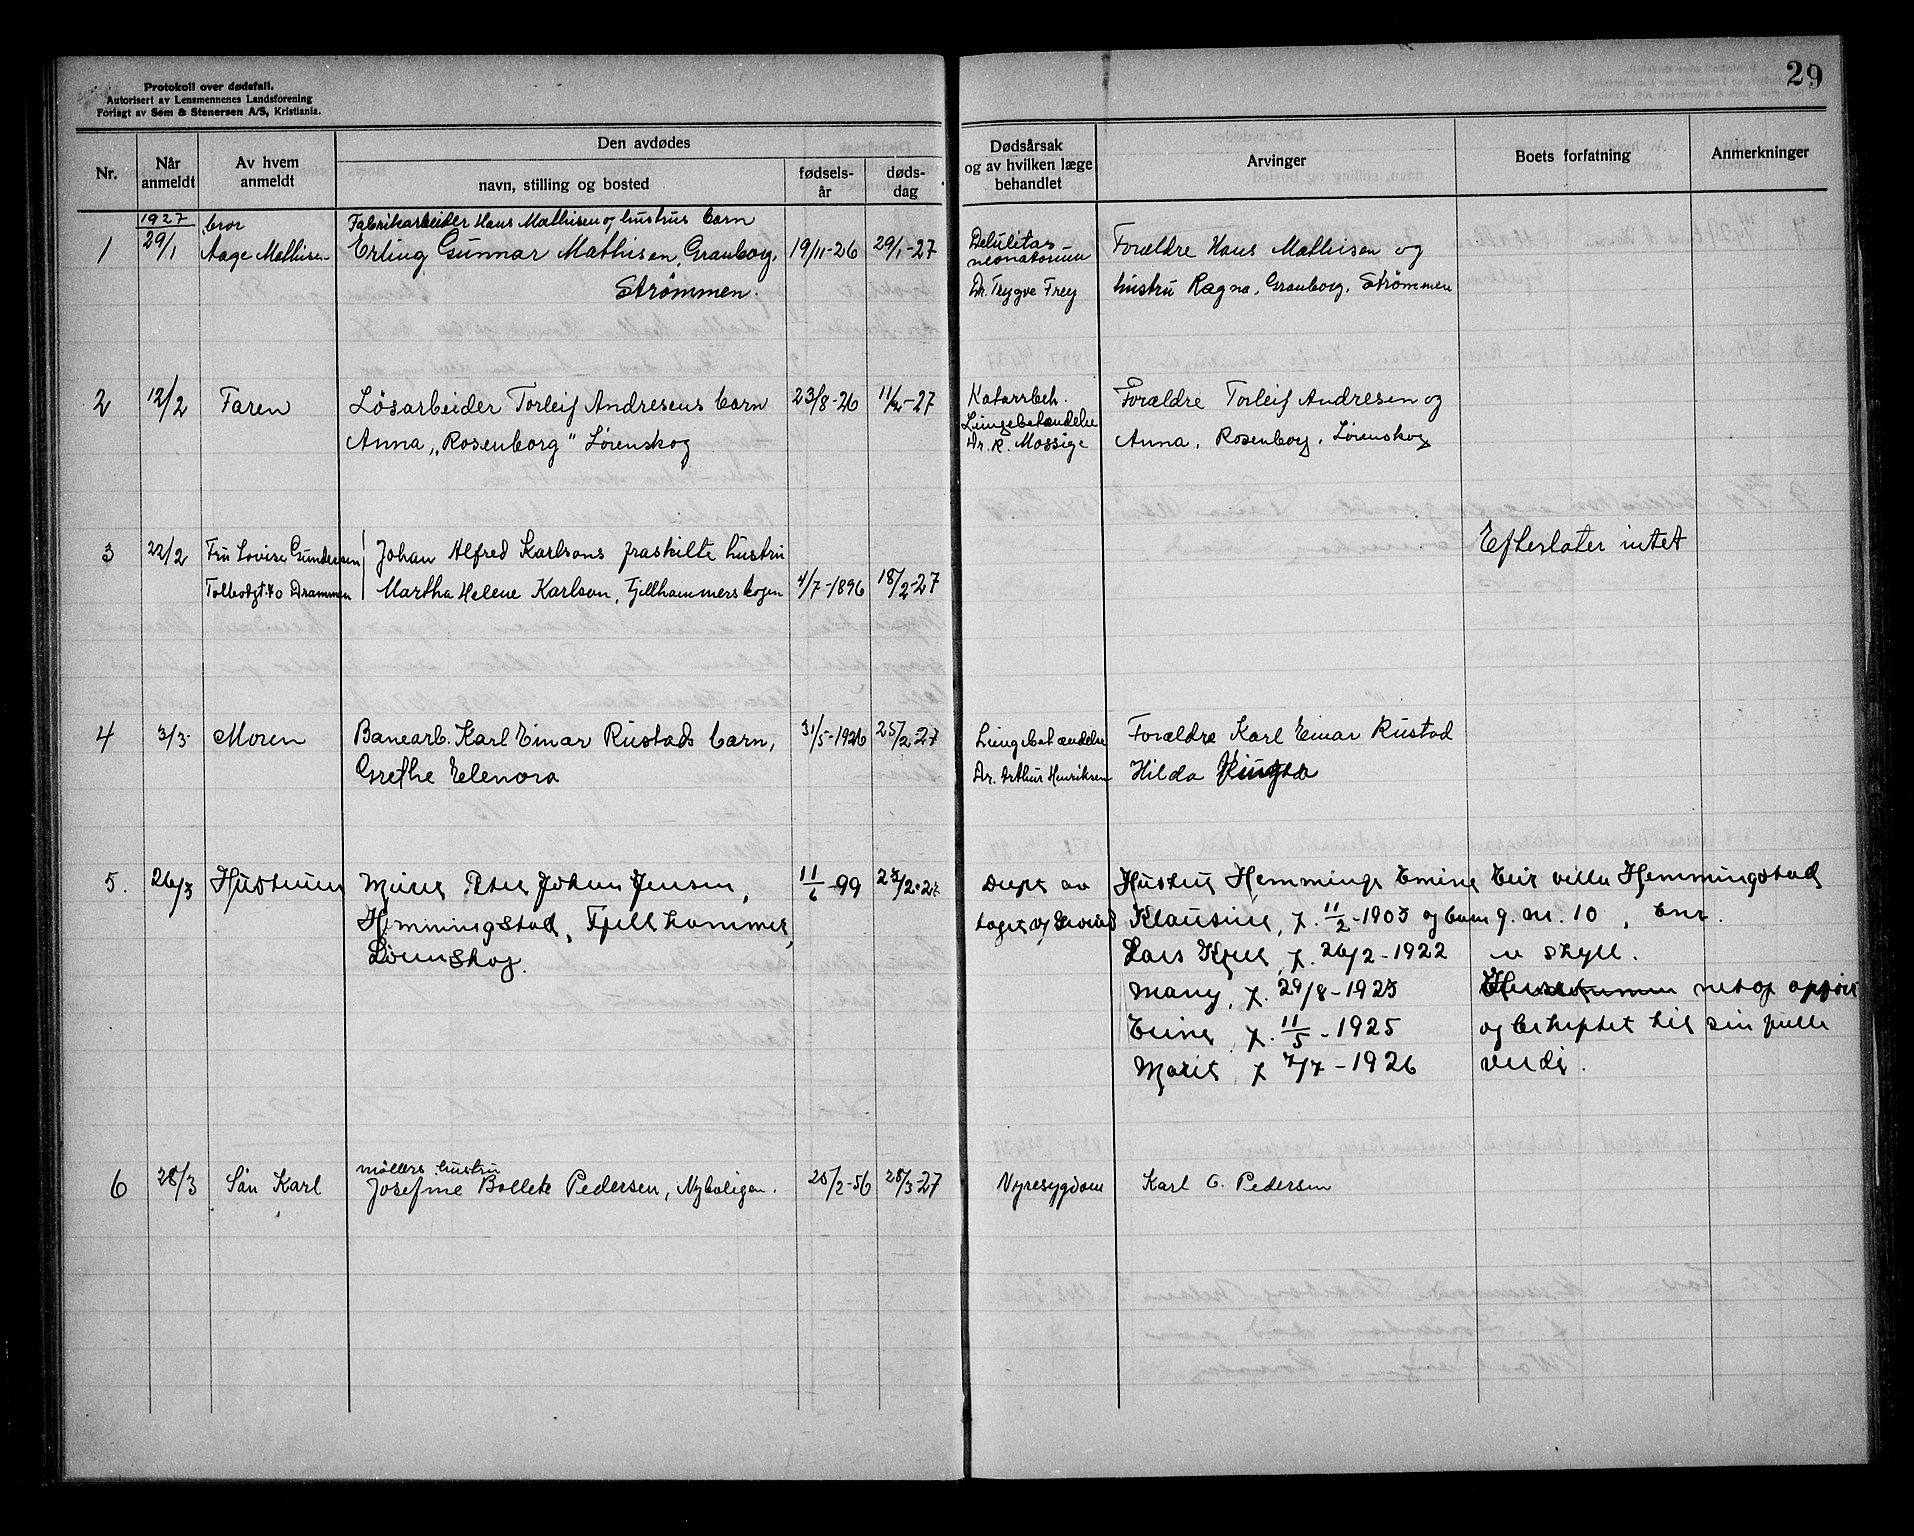 Protokoll over dødsfall.
Autorisert av Lensmennenes Landsforening
Forlagt av Sem & Stenersen A/S, Kristiania.
29
Nr.
Når anmeldt
Av hvem anmeldt
Den avdødes
navn, stilling og bosted
fødsels-år
døds-dag
Dødsårsak og av hvilken læge behandlet
Arvinger
Boets forfatning
Anmerkninger
1927
1 29/1 bror Aage Mathisen
Fabrikarbeider Hans Mathisen og hustrus barn
Erling Gunnar Mathisen, Granborg, 19/11-26 29/1-27
Strømmen.
Debilitas
neonatorum
Dr. Trygve Frey
Forældre Hans Mathisen og
hustru Ragna, Granborg, Strømmen
2 12/2 Faren Løsarbeider Torleif Andresens barn 23/8-26 11/2-27
Anna, "Rosenborg" Lørenskog
Katarrbeh.
Lungebetændelse
Dr. R. Mossige
Forældre Torleif Andresen og
Anna, Rosenborg, Lørenskog
3 22/2 Fru Lovise Gundersen Johan Alfred Karlsons fraskilte hustru
Tolbodgt. 40 Drammen Martha Helene Karlson, Fjellhammerskogen 4/7-1896 18/2-27
Efterlater intet
4 3/3- Moren Banearb. Karl Einar Rustads barn, 31/5-1926 25/2-27
Grethe Elenora
Lungebetændelse
Dr. Arthur Henriksen
Forældre Karl Einar Rustad
Hilda
5. 26/3 Hustruen Murer Peter Johan Jensen, 11/6-99
Hemmingstad, Fjellhammer,
Lørenskog.
Dræpt av
toget
Hustru Hemminge Emine
Klausine, f. 11/2-1903 og barn
Lars Kjell, f. 26/2-1922
Mary, f. 29/8-1923
f. 11/5-1925
Marit, f 7/7-1926
Eier villa Hemmingstad
g. nr. 10, bnr.
skyll.
netop opført
og beheftet til sin fulle
verdi.
6 28/3 Søn Karl møllers hustru
Josefine Bollete Pedersen, Nyboligen. 25/2-56 28/3-27
Nyresygdom
Karl C. Pedersen